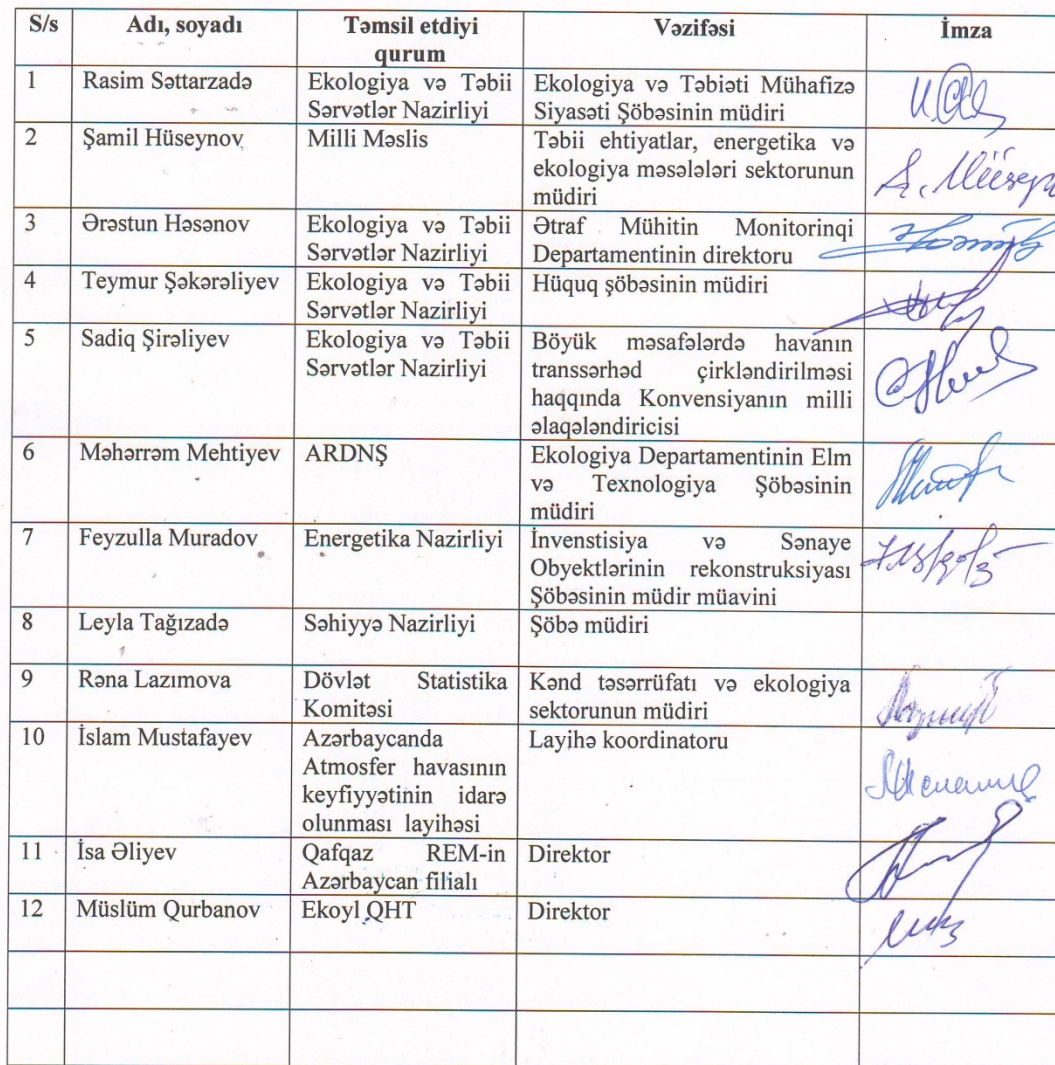 S/s Adı, soyadı Təmsil etdiyi qurum Vəzifəsi İmza
1 Rasim Səttarzadə Ekologiya və Təbii Sərvətlər Nazirliyi Ekologiya və Təbiəti Mühafizə Siyasəti Şöbəsinin müdiri
2 Şamil Hüseynov Milli Məslis Təbii ehtiyatlar, energetika və ekologiya məsələləri sektorunun müdiri
3 Ərəstun Həsənov Ekologiya və Təbii Sərvətlər Nazirliyi Ətraf Mühitin Monitorinqi Departamentinin direktoru
4 Teymur Şəkərəliyev Ekologiya və Təbii Sərvətlər Nazirliyi Hüquq şöbəsinin müdiri
5 Sadiq Şirəliyev Ekologiya və Təbii Sərvətlər Nazirliyi Böyük məsafələrdə havanın transsərhəd çirkləndirilməsi haqqında Konvensiyanın milli əlaqələndiricisi
6 Məhərrəm Mehtiyev ARDNŞ Ekologiya Departamentinin Elm və Texnologiya Şöbəsinin müdiri
7 Feyzulla Muradov Energetika Nazirliyi İnvenstisiya və Sənaye Obyektlərinin rekonstruksiyası Şöbəsinin müdir müavini
8 Leyla Tağızadə Səhiyyə Nazirliyi Şöbə müdiri
9 Rəna Lazımova Dövlət Statistika Komitəsi Kənd təsərrüfatı və ekologiya sektorunun müdiri
10 İslam Mustafayev Azərbaycanda Atmosfer havasının keyfiyyətinin idarə olunması layihəsi Layihə koordinatoru
11 İsa Əliyev Qafqaz REM-in Azərbaycan filialı Direktor
12 Müslüm Qurbanov Ekoyl QHT Direktor